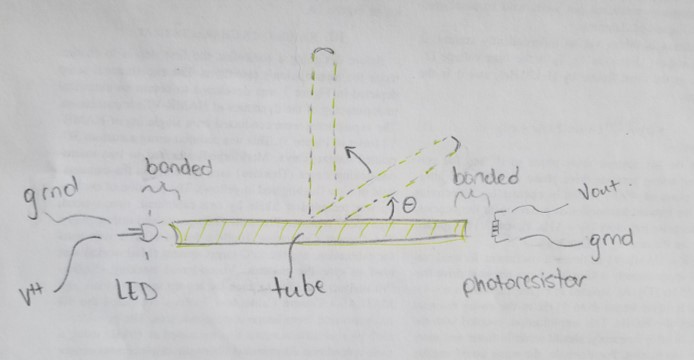 bonded
grnd
V++
LED
tube
θ
bonded
Vout.
gmd
photoresistor